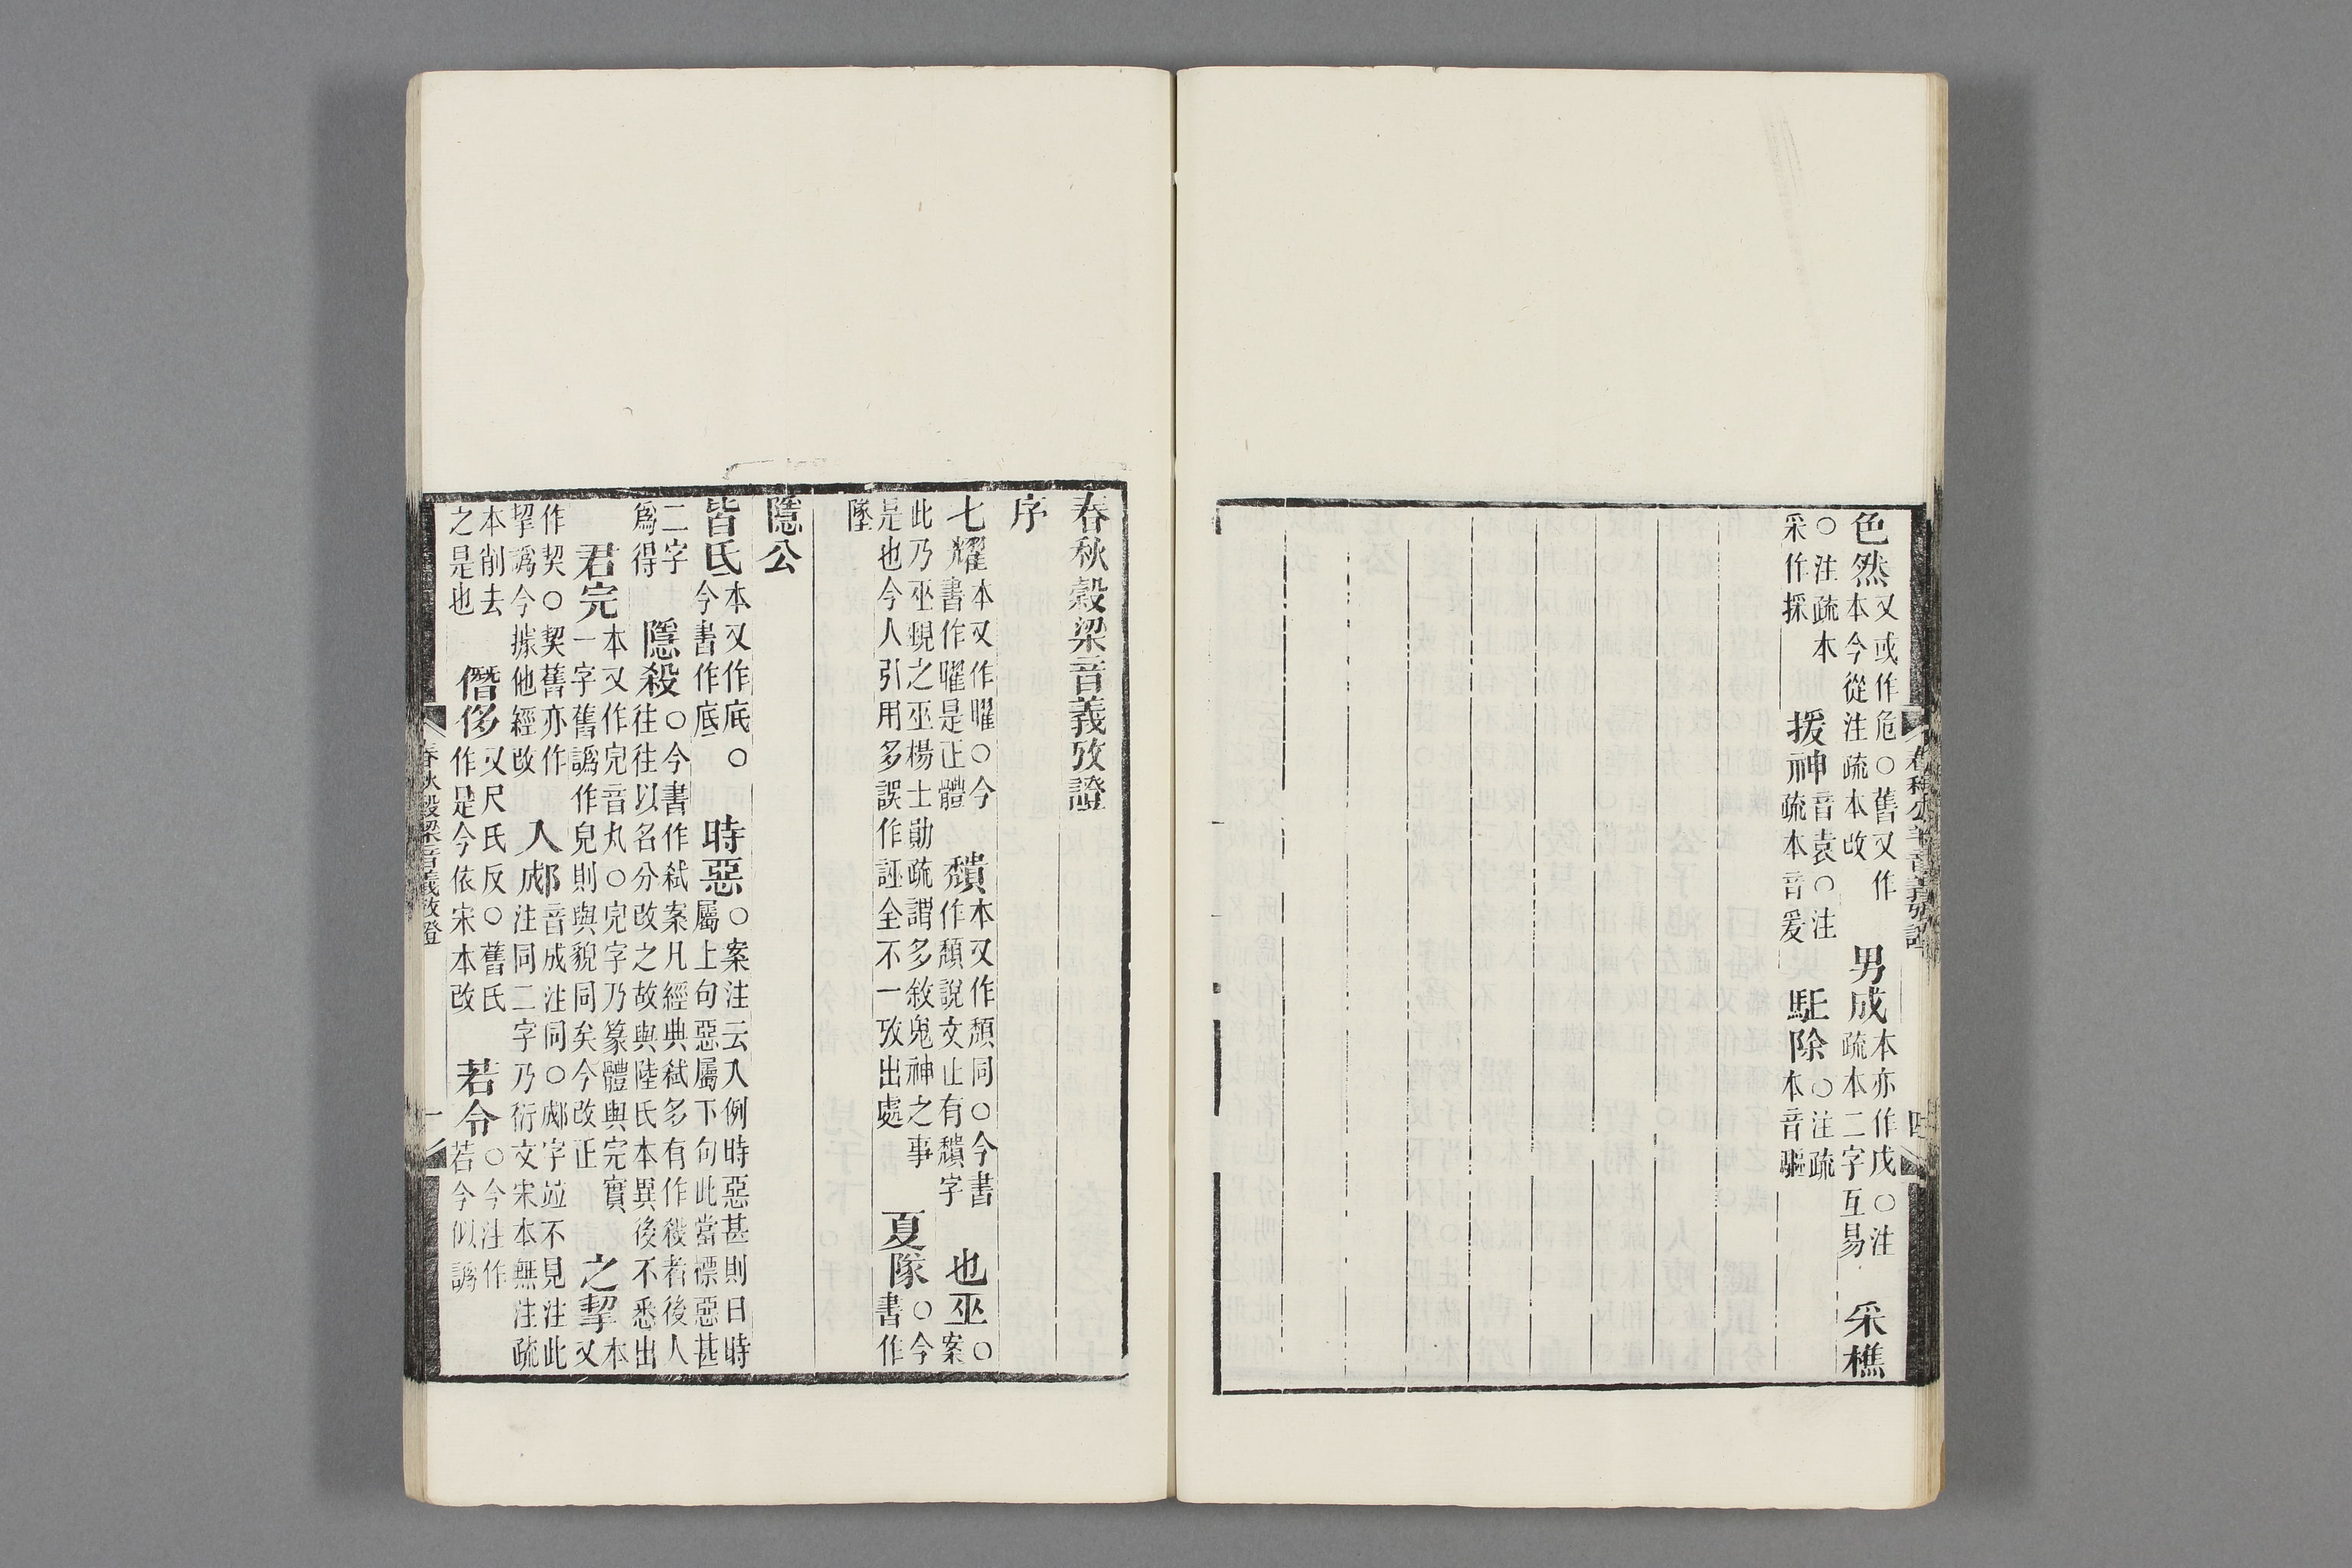 色然又或作危○舊又作本今從注疏本改　男成本亦作戊○注疏本二字互易　采樵
○注疏本采作採　援神音袁○注疏本音爰　駈除○注疏本音驅
春秋公羊音義攷證
四
春秋穀梁音義攷證
序
七耀本又作曜○今書作曜是正體　穨本又作頽同○今書作頽說文止有穨字　也巫○案
此乃巫覡之巫楊士勛疏謂多敘鬼神之事是也今人引用多誤作誣全不一攷出處　夏隊○今書作
墜
隱公
皆氐本又作底○今書作底　時惡○案注云入例時惡甚則日時屬上句惡屬下句此當慓惡甚
二字爲得　隱殺○今書作弑案凡經典弑多有作殺者後人往往以名分改之故與陸氏本異後不悉出
君完本又作兒音丸○兒字乃篆體與完實一字舊譌作皃則與貌同矣今改正　之挈本又
作契○契舊亦作挈譌今據他經改　入郕音成注同○郕字竝不見注此注同二字乃衍文宋本無注疏
本削去之是也　僭侈又尺氏反○舊氏作是今依宋本改　若令○今注作若今似譌
春秋穀梁音義攷證
一